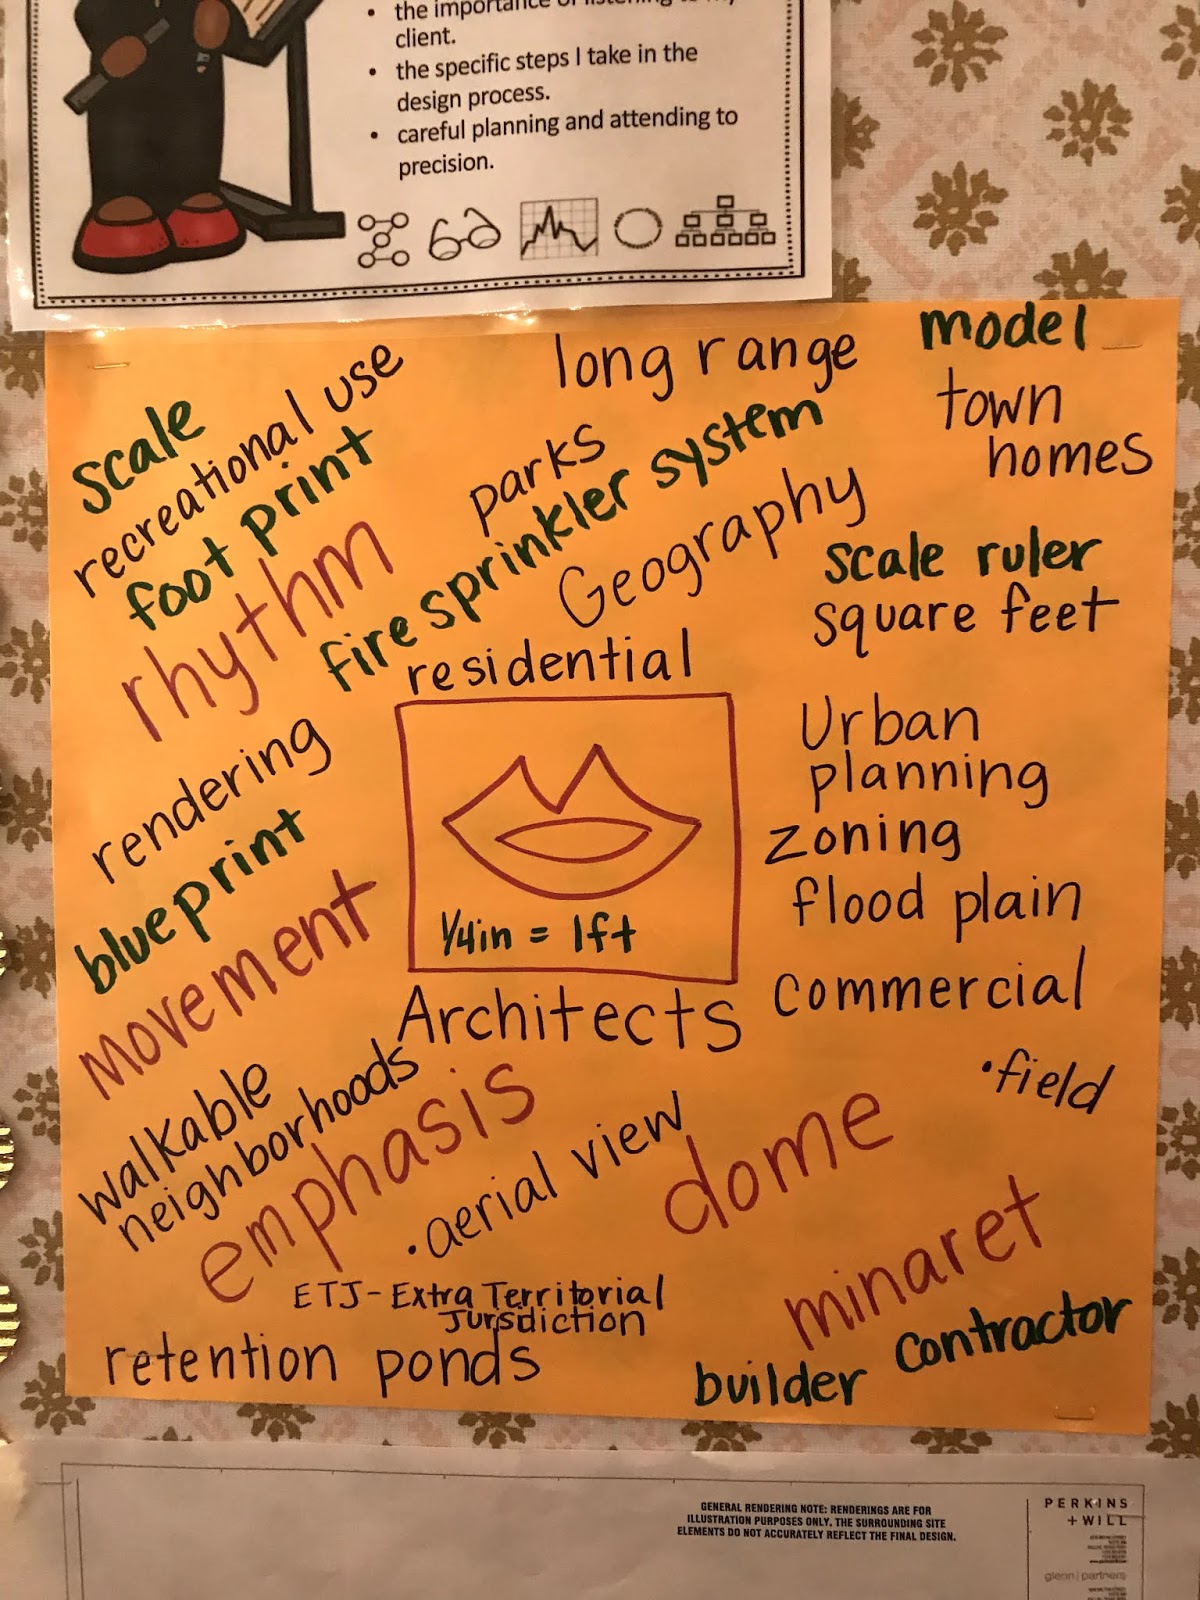 client.
• the specific steps I take in the
design process.
• careful planning and attending to
precision.
scale
recreational use
foot print
rhythm
long range
model
town
homes
parks
fire sprinkler system
Geography
scale ruler
square feet
residential
rendering
blueprint
movement
Urban
planning
zoning
flood plain
1/4in = 1ft
Architects
commercial
walkable
neighborhoods
emphasis
• aerial view
dome
• field
minaret
ETJ - Extra Territorial
Jursdiction
retention ponds
builder
contractor
GENERAL RENDERING NOTE: RENDERINGS ARE FOR
ILLUSTRATION PURPOSES ONLY. THE SURROUNDING SITE
ELEMENTS DO NOT ACCURATELY REFLECT THE FINAL DESIGN.
PERKINS
+ WILL
glenn | partners